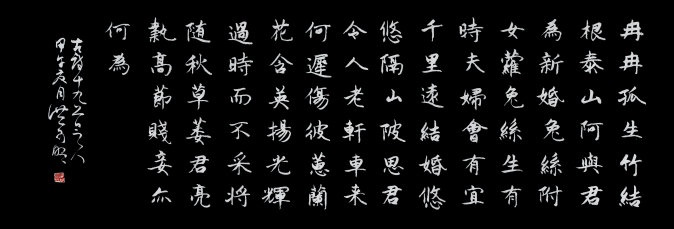 冉冉孤生竹結
根泰山阿與君
為新婚兔絲附
女蘿兔絲生有
時夫婦會有宜
千里遠結婚悠
悠隔山陂思君
令人老軒車来
何遲傷彼蕙蘭
花含英揚光輝
過時而不采將
随秋草萎君亮
執高節賤妾亦
何為
古詩十九首之八
甲午夏月